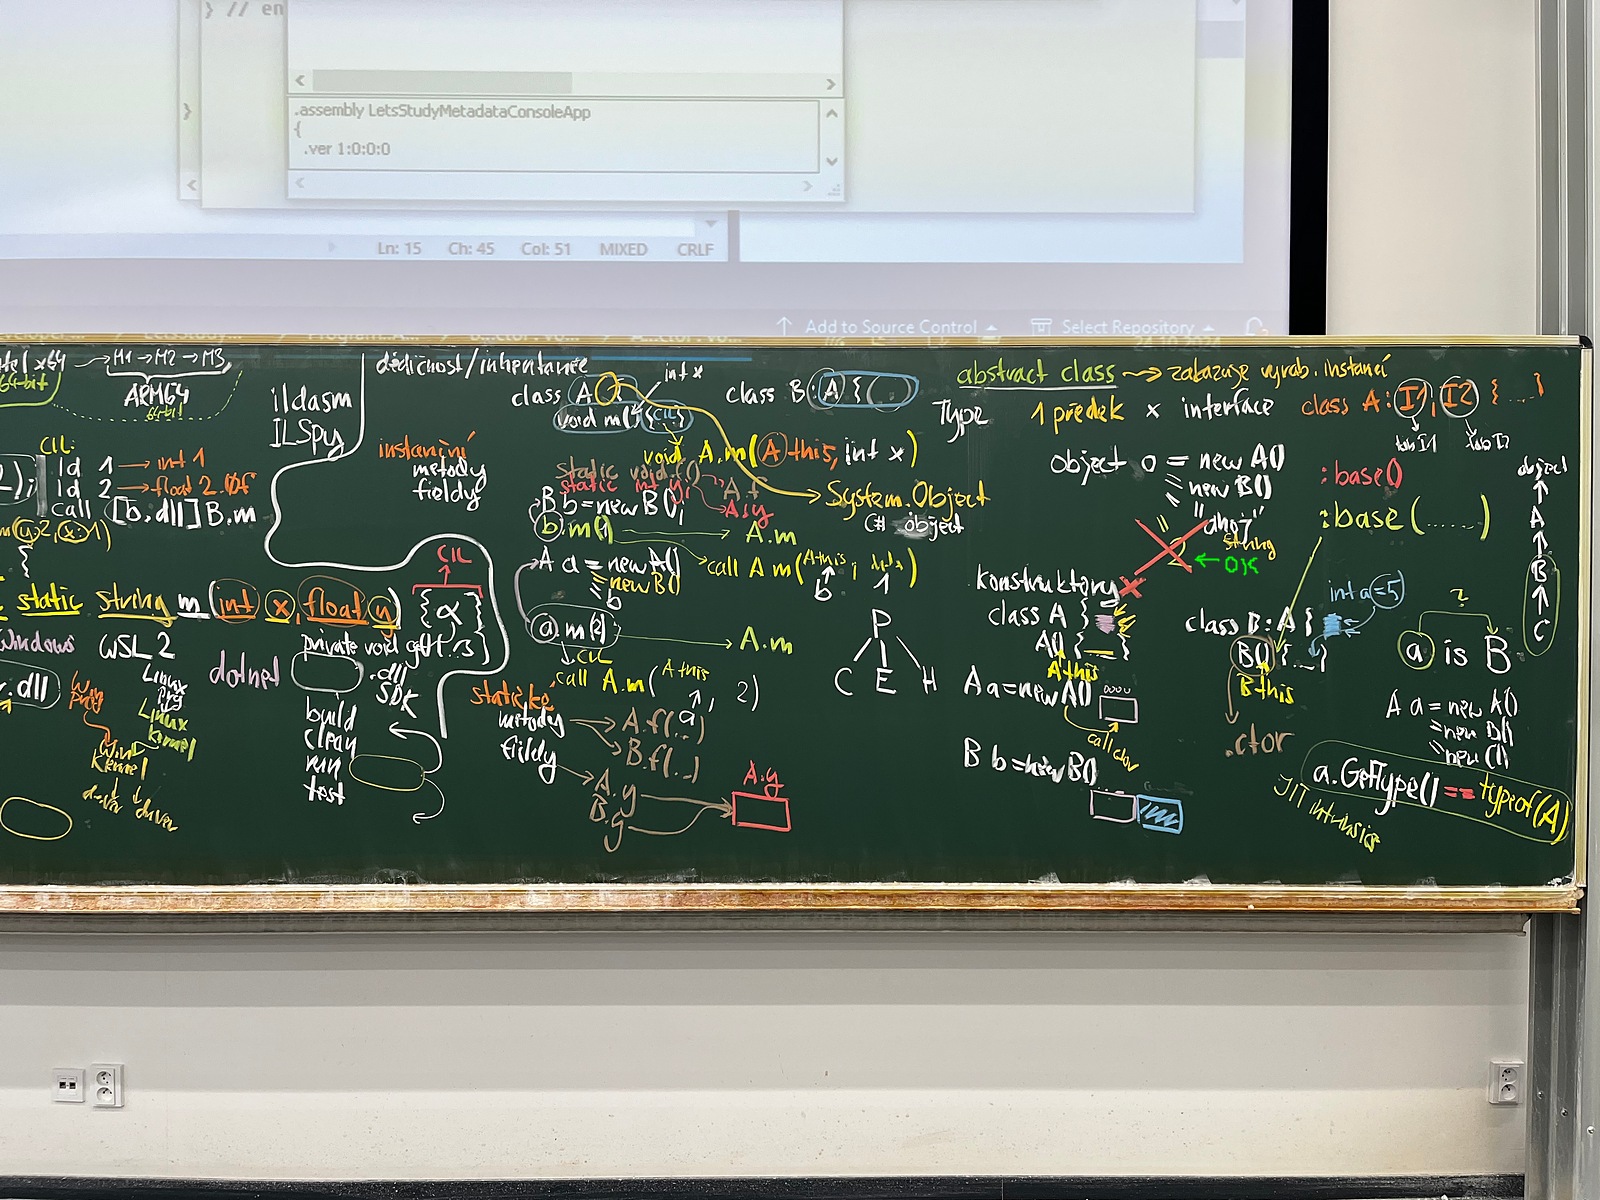 } // en
}
.assembly LetsStudyMetadataConsoleApp
{
.ver 1:0:0:0
Ln: 15 Ch: 45 Col: 51 MIXED CRLF
Add to Source Control
Select Repository
x64 → M1 → M2 → M3,
64-bit
ARM64
64-bit
ildasm
ILSpy
CIL:
ld 1 → int 1
ld 2 → float 2.0f
call [b.dll] B.m
m(y:2, x:1)
{
static string m (int x, float y)
CIL
{ α }
private void get
Windows WSL 2
dotnet
.dll
.dll
SDK
build
clean
run
test
Win
Linux
Linux
kernel
Win
Kernel
driver driver
dědičnost/inheritance
class A
int x
void m() {CIL}
class B: A {
void A.m(A this, int x)
instanční
metody
fieldy
static void f()
static int y;
A.f
A.y
System.Object
C# object
B b = new B();
b.m()
A.m
call A.m(A this, int x)
b 1
A a = new A()
= new B()
= b
a.m(2)
A.m
CIL
call A.m(A this
a, 2)
statické
metody
fieldy
A.f(..)
B.f(..)
A.y
B.y
A.y
P
C E H
abstract class → zakazuje vyrob. instancí
Type
1 předek x interface
class A: I1, I2 { ... }
tab I1
tab I2
object o = new A()
= new B()
= "ahoj"
string
← OK
:base()
:base(.....)
konstruktory
class A {
A() {_}
A this
A a = new A()
call ctor
B b = new B()
class B: A {
int a=5
B() {_}
B this
.ctor
object
A
B
C
?
a is B
A a = new A()
= new B()
= new C()
a.GetType() == typeof(A)
JIT intrinsic